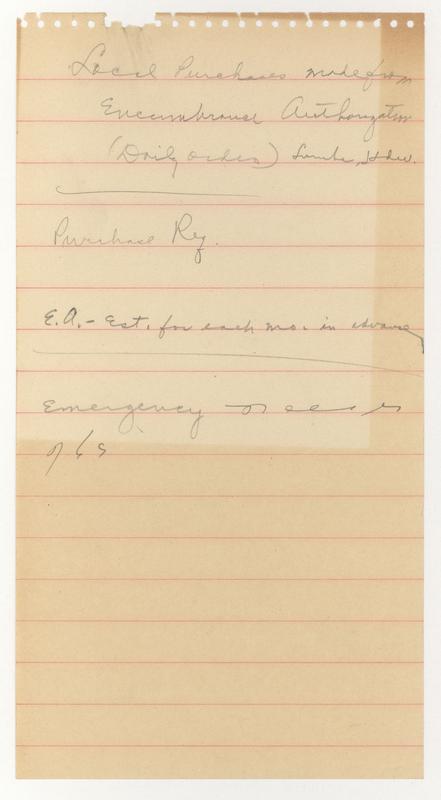 Local Purchases made from
Encumbrance Authorization
(Daily orders) Lumber, Hdw.
Purchase Req.
E.A. - Est. for each mo. in advance
Emergency